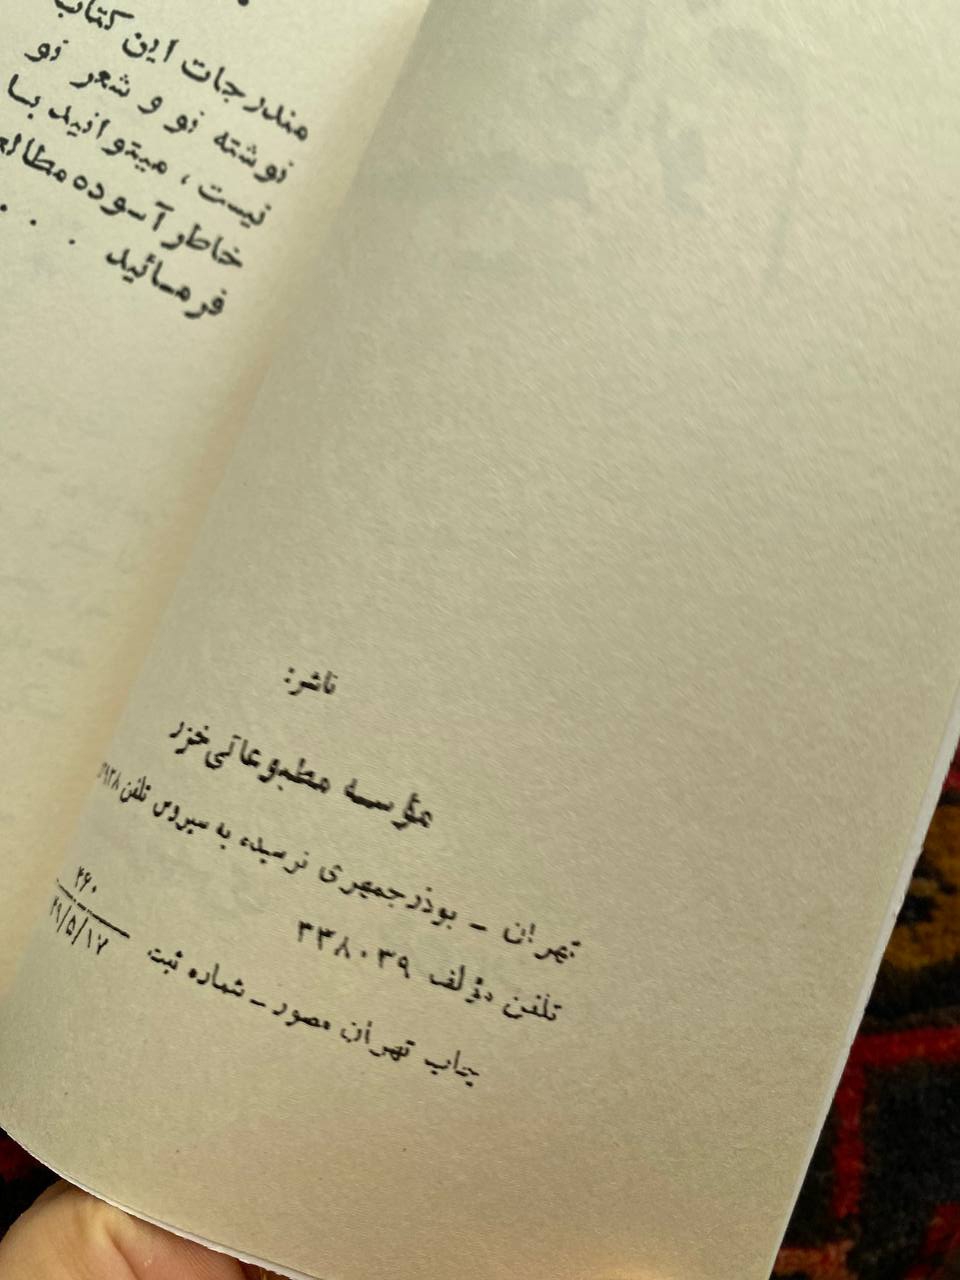 مندرجات این کتاب
نوشته نو و شعر نو
نیست، میتوانید بـا
خاطر آسوده مطالعه
فرمـائید . . .
ناشر:
مؤسسه مطبوعاتی خزر
تهران – بوذرجمهری نرسیده به سیروس تلفن
تلفن مؤلف ۳۳۸۰۳۹
چاپ تهران مصور – شماره ثبت ۲۶۰
۴۹/۵/۱۷